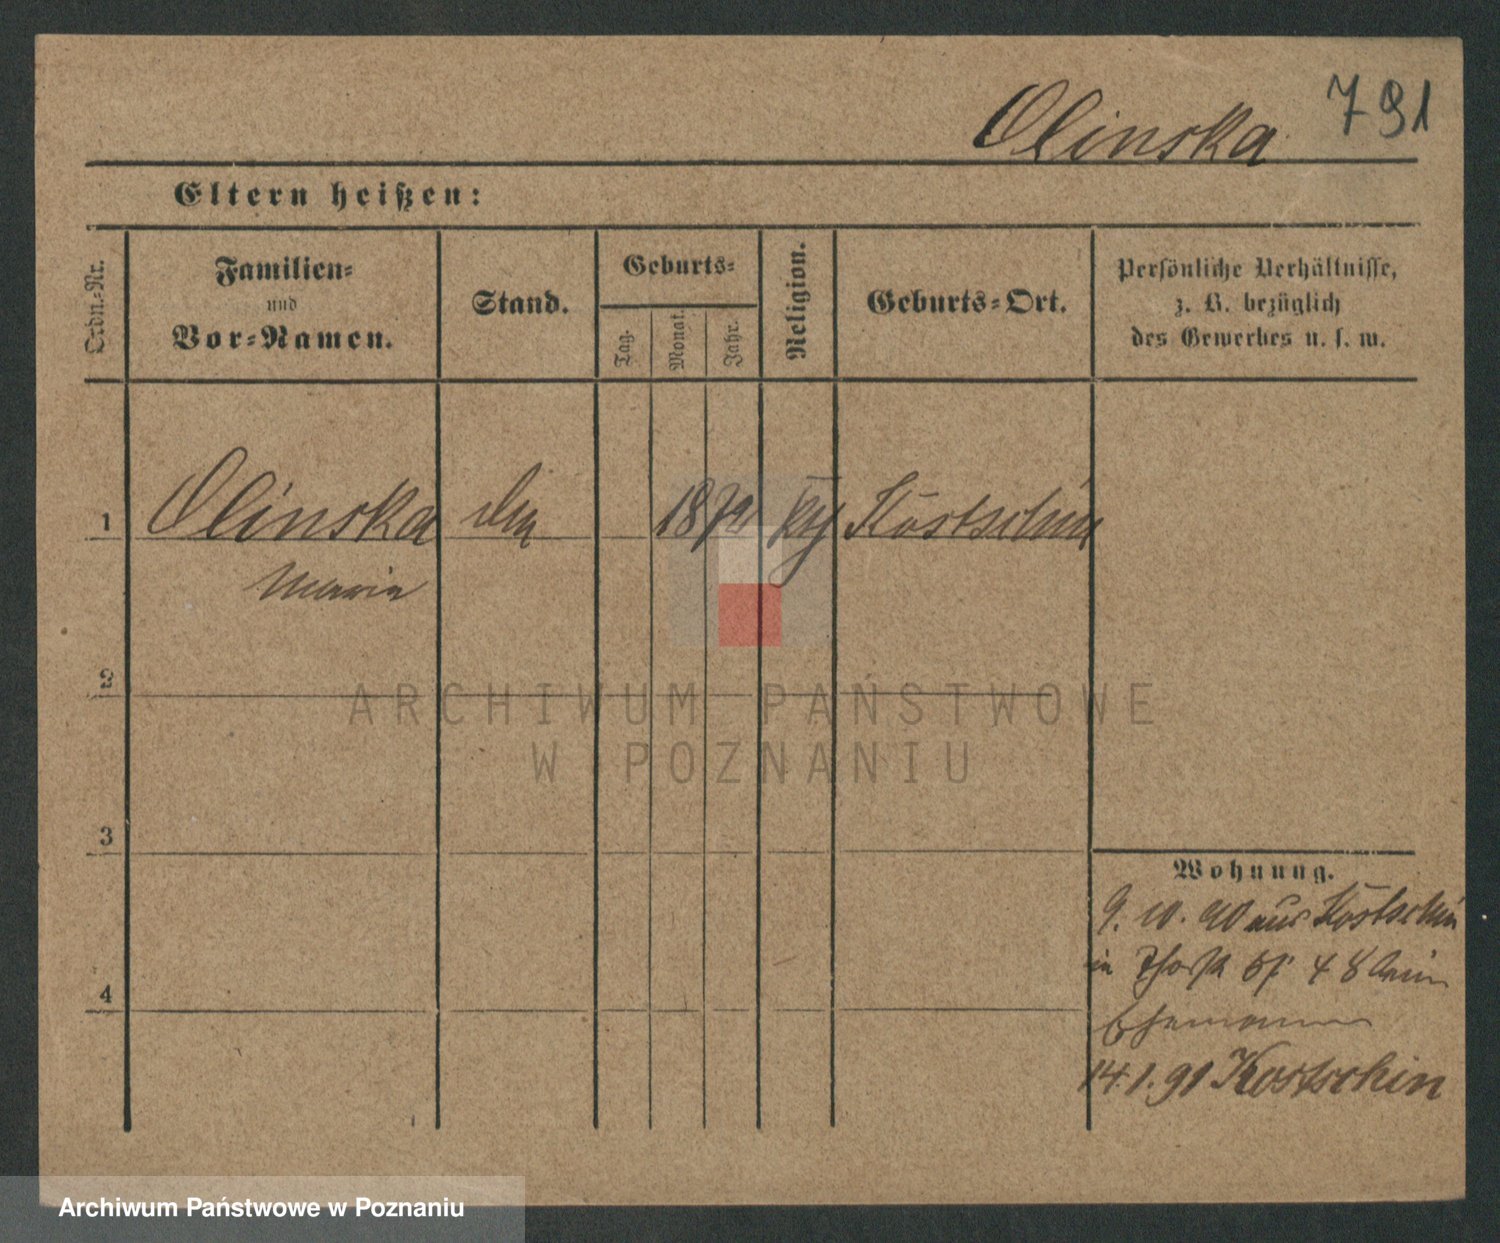 Olinska 791
Eltern heißen:
Ordn.-Nr.
Familien-
und
Vor-Namen.
Stand.
Geburts-
Tag.
Monat.
Jahr.
Religion.
Geburts-Ort.
Persönliche Verhältnisse,
z. B. bezüglich
des Gewerbes u. s. w.
1 Olinska 1872 Kostschin
Maria
2
3
4
Wohnung.
9. 10. 90 aus Kostschin
in 48 bei
Ehemann
14. 1. 91 Kostschin
ARCHIWUM PAŃSTWOWE
W POZNANIU
Archiwum Państwowe w Poznaniu